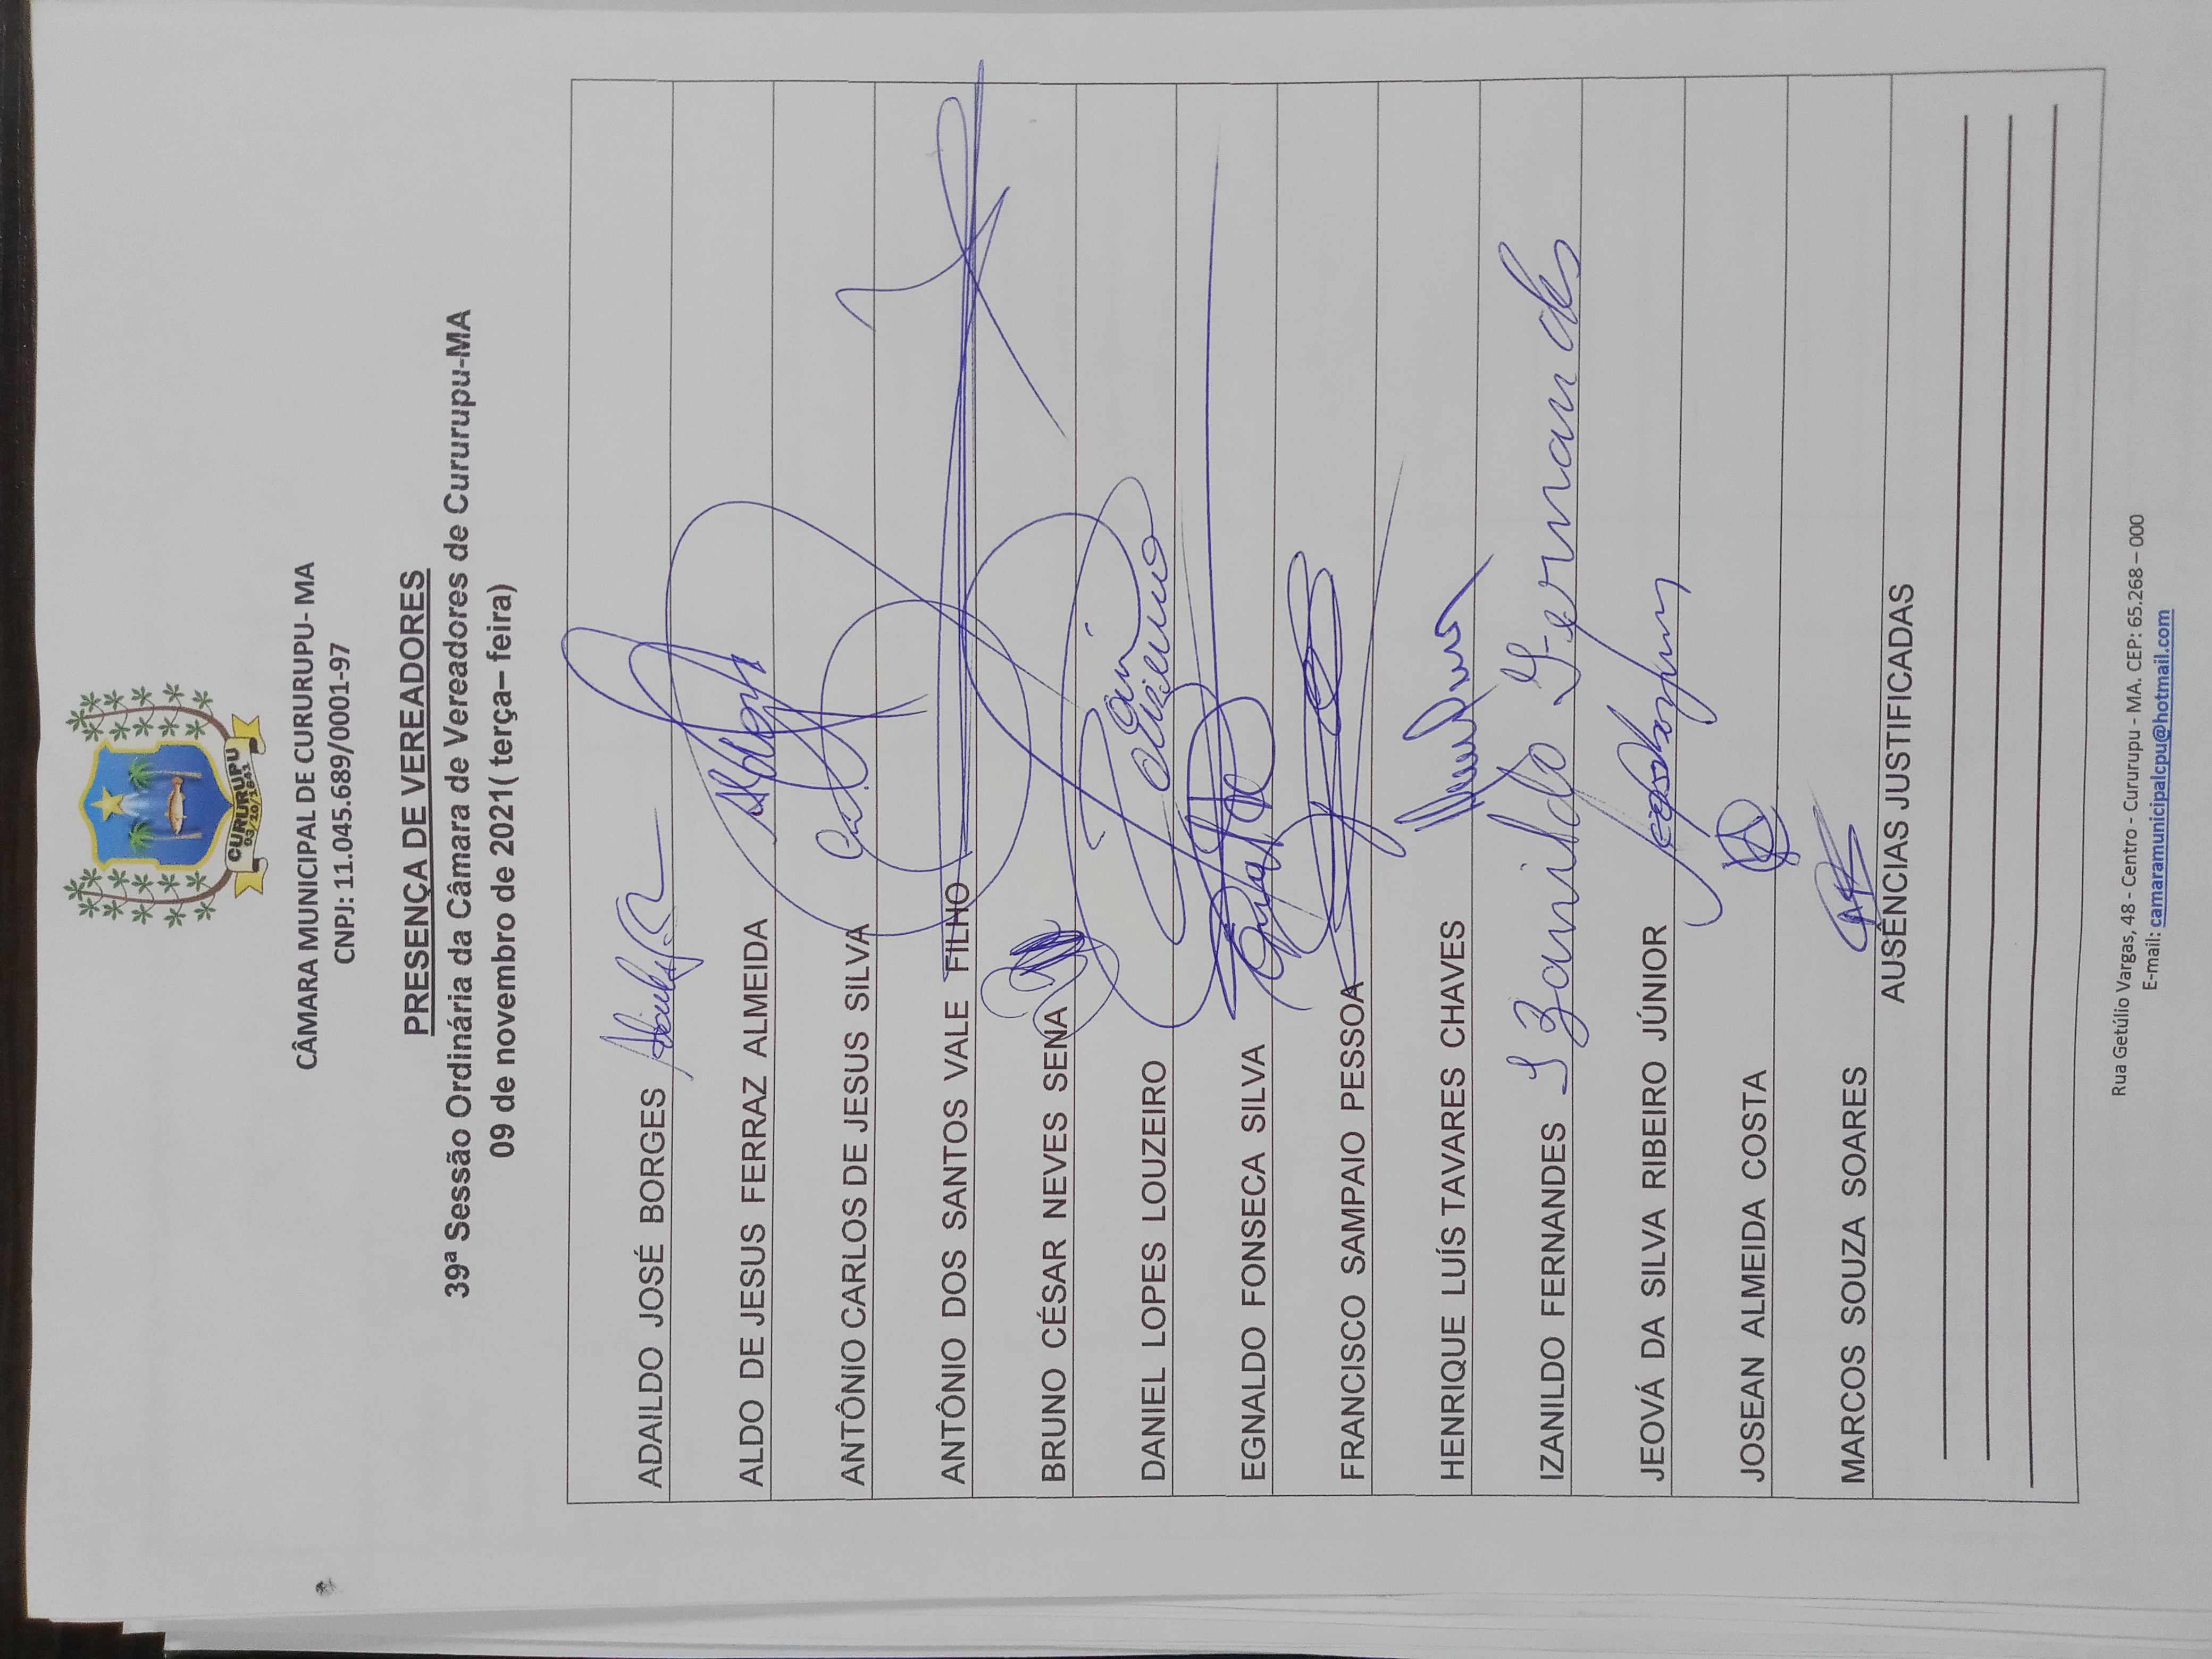 CURURUPU
03/10/1841
CÂMARA MUNICIPAL DE CURURUPU- MA
CNPJ: 11.045.689/0001-97
PRESENÇA DE VEREADORES
39ª Sessão Ordinária da Câmara de Vereadores de Cururupu-MA
09 de novembro de 2021( terça– feira)
ADAILDO JOSÉ BORGES
ALDO DE JESUS FERRAZ ALMEIDA
ANTÔNIO CARLOS DE JESUS SILVA
ANTÔNIO DOS SANTOS VALE FILHO
BRUNO CÉSAR NEVES SENA
DANIEL LOPES LOUZEIRO
EGNALDO FONSECA SILVA
FRANCISCO SAMPAIO PESSOA
HENRIQUE LUÍS TAVARES CHAVES
IZANILDO FERNANDES Izanildo Fernandes
JEOVÁ DA SILVA RIBEIRO JÚNIOR
JOSEAN ALMEIDA COSTA
MARCOS SOUZA SOARES
AUSÊNCIAS JUSTIFICADAS
Rua Getúlio Vargas, 48 - Centro - Cururupu - MA. CEP: 65.268 – 000
E-mail: camaramunicipalcpu@hotmail.com